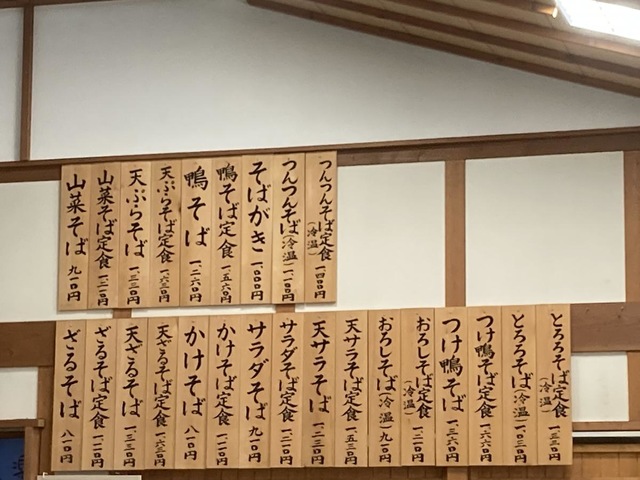 つんつんそば定食(冷温)一、四〇〇円
つんつんそば(冷温)一、一〇〇円
そばがき 一、〇〇〇円
鴨そば定食 一、五六〇円
鴨そば 一、二六〇円
天ぷらそば定食 一、六三〇円
天ぷらそば 一、三三〇円
山菜そば定食 一、二一〇円
山菜そば 九一〇円
とろろそば定食(冷温)一、三三〇円
とろろそば(冷温)一、〇三〇円
つけ鴨そば定食 一、六六〇円
つけ鴨そば 一、三六〇円
おろしそば定食(冷温)一、二一〇円
おろしそば(冷温)九一〇円
天サラそば定食 一、五三〇円
天サラそば 一、二三〇円
サラダそば定食 一、二一〇円
サラダそば 九一〇円
かけそば定食 一、一二〇円
かけそば 八一〇円
天ざるそば定食 一、六三〇円
天ざるそば 一、三三〇円
ざるそば定食 一、一二〇円
ざるそば 八一〇円